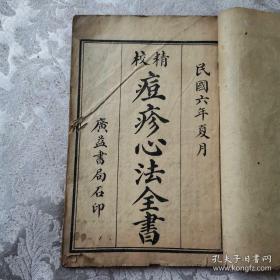 民國六年夏月
精校
痘疹心法全書
廣益書局石印
孔夫子旧书网